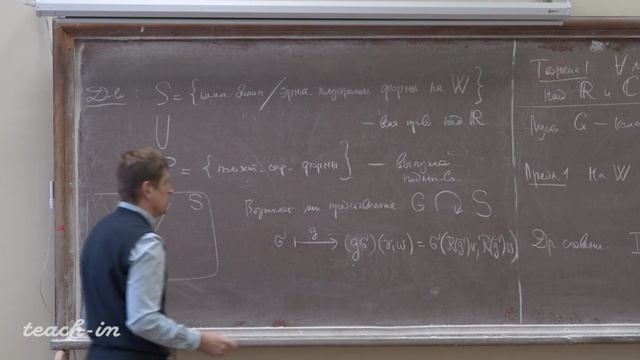 Д-во: S = { симм. билин / эрмит. полуторалин. формы на W }
— вект. пр-во над ℝ
U
P = { полож.-опр. формы } — выпукл. подмн-во.
S
Возникает лин. представление G ↷ S
σ ⟼ᵍ (gσ)(v,w) = σ(R(g⁻¹)v, R(g⁻¹)w)
Теорема 1 ∀
над ℝ и ℂ
Пусть G —
Предл. 1 На W
Др. словами:
teach-in